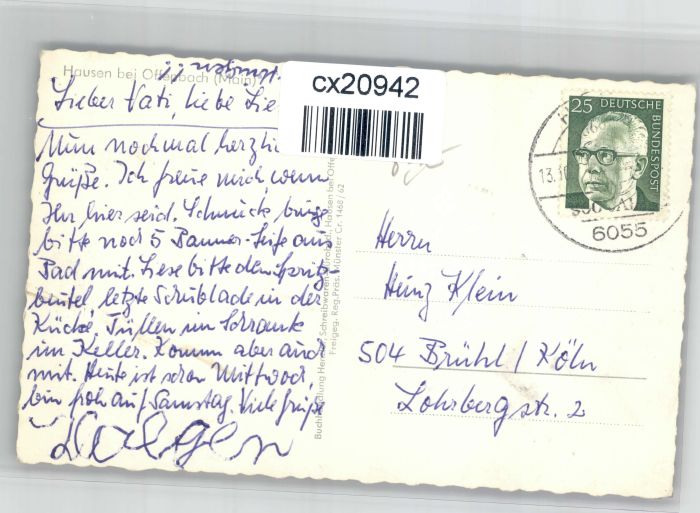 Hausen bei Offenbach (Main)
Lieber Vati, liebe
Nun nochmal herzlic
Grüße. Ich freue mich, wenn
Ihr hier seid. Schmücke bringe
bitte noch 5 Banner-Seife aus
Bad mit. Liese bitte den Spritz-
beutel, letzte Schublade in der
Küche, Tüllen im Schrank
im Keller. Komm aber auch
mit. Heute ist schon Mittwoch,
bin froh auf Samstag. Viele Grüße
cx20942
Freigeg. Reg.Präs. Münster Cr. 1468/62
25 DEUTSCHE BUNDESPOST
13.10
6055
Herrn
Heinz Klein
504 Brühl / Köln
Lohrbergstr. 2